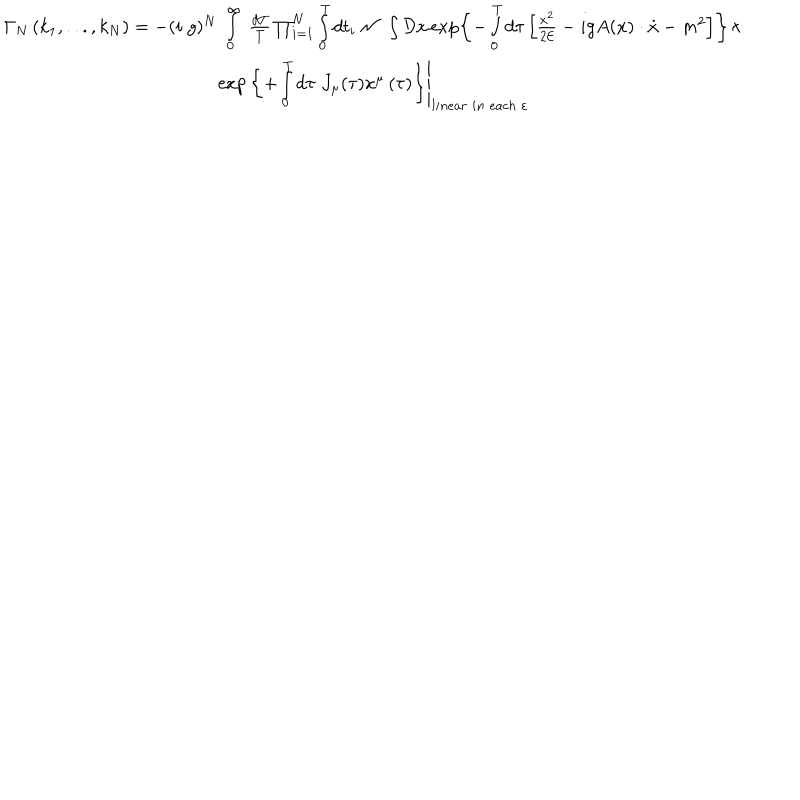 Γ_N (k_1, ..., k_N) = -(i g)^N ∫_0^∞ dT/T ∏_{i=1}^N ∫_0^T dt_i 𝒩 ∫ Dx exp{ - ∫_0^T dτ [ x^2/2ℰ - igA(x) · ẋ - m^2 ] } ×
exp { + ∫_0^T dτ J_μ(τ)x^μ (τ) } |_{linear in each ε}